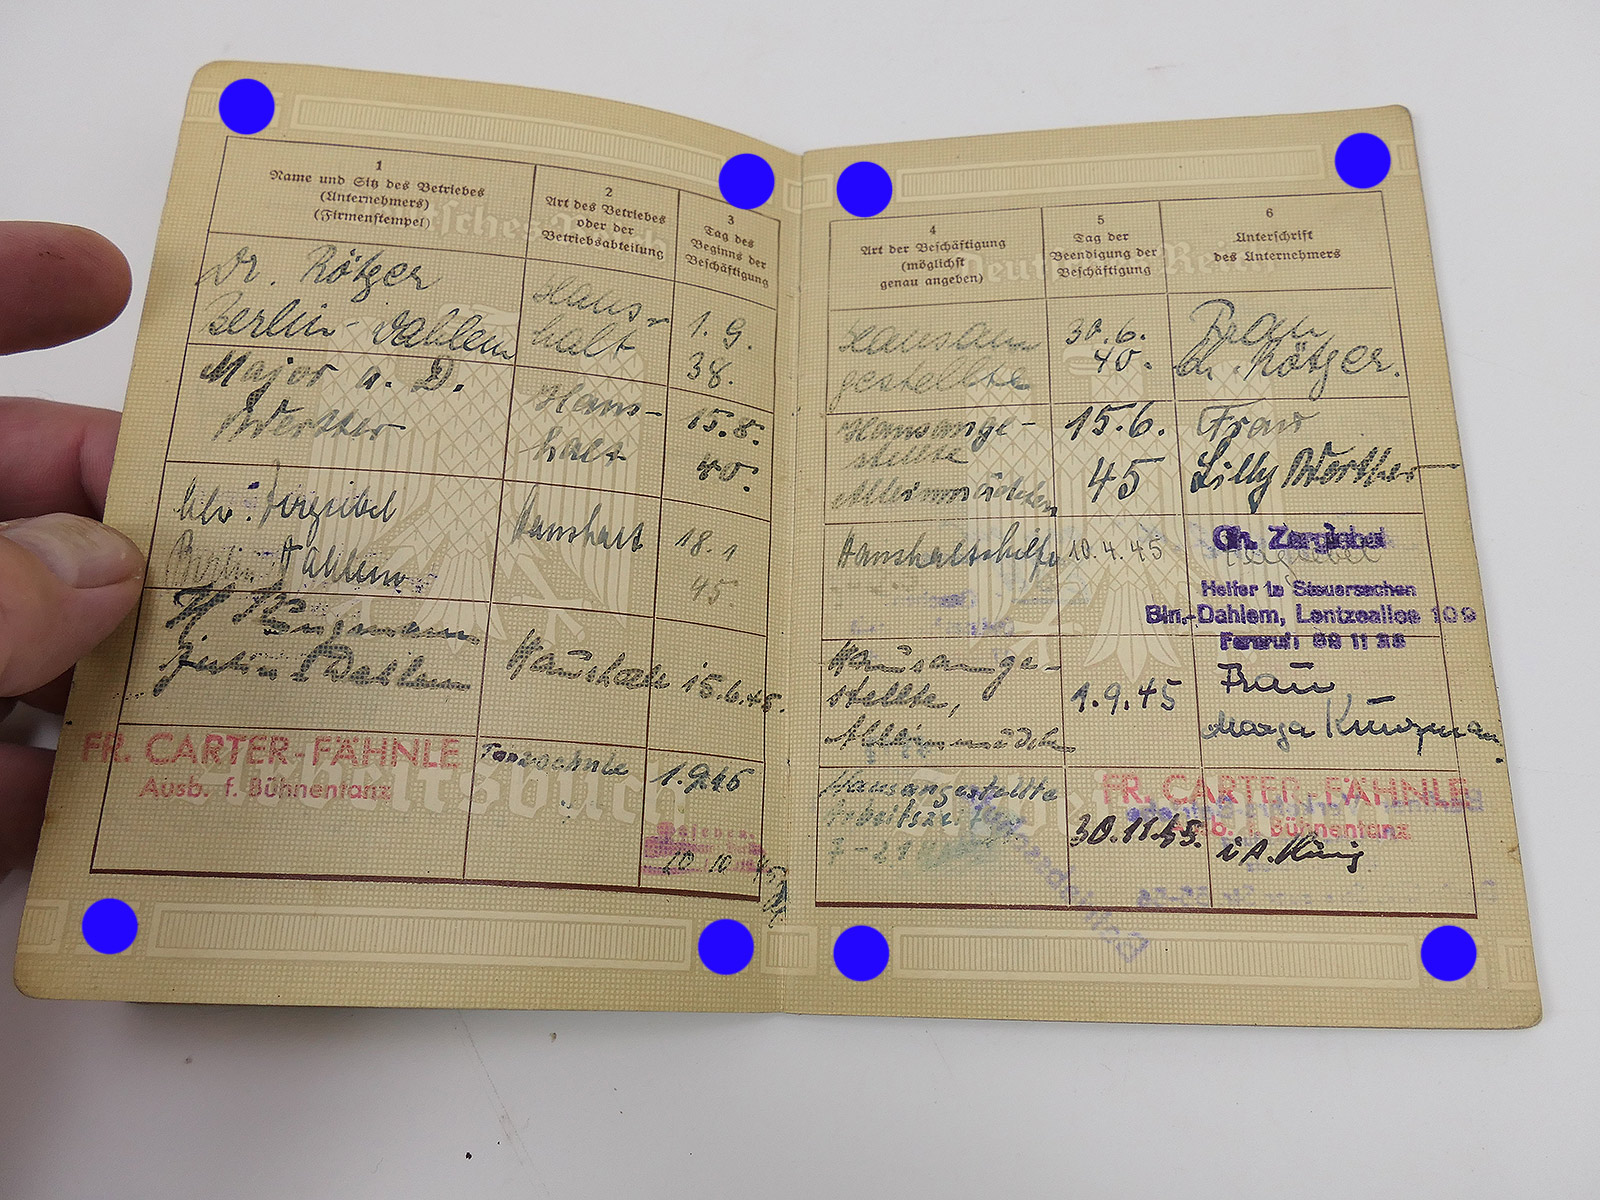 1
Name und Sitz des Betriebes
(Unternehmers)
(Firmenstempel)
2
Art des Betriebes
oder der
Betriebsabteilung
3
Tag des
Beginns der
Beschäftigung
Dr. Rötger
Berlin-Dahlem
Haus-
halt
1. 9.
38.
Major a. D.
Werther
Haus-
halt
15.8.
40.
Berlin Dahlem
Haushalt
18.1
45
Berlin Dahlem
Haushalt
15.6.45.
FR. CARTER-FÄHNLE
Ausb. f. Bühnentanz
Tanzschule
1.9.45
10 10 45
Arbeitsbuch
4
Art der Beschäftigung
(möglichst
genau angeben)
5
Tag der
Beendigung der
Beschäftigung
6
Unterschrift
des Unternehmers
Deutsches Reich
Hausan
gestellte
30.6.
40.
Frau
Dr. Rötger.
Hausange-
stellte
Alleinmädchen
15.6.
45
Frau
Lilly Werther
Haushaltshilfe
10.4.45
Ch. Zergiebel
Helfer in Steuersachen
Bln.-Dahlem, Lentzeallee 109
Fernruf:
Hausange-
stellte,
Alleinmädchen
1.9.45
Frau
Marga
Hausangestellte
Arbeitszeit
7-21
30.11.45.
FR. CARTER-FÄHNLE
Ausb. f. Bühnentanz
i A. König